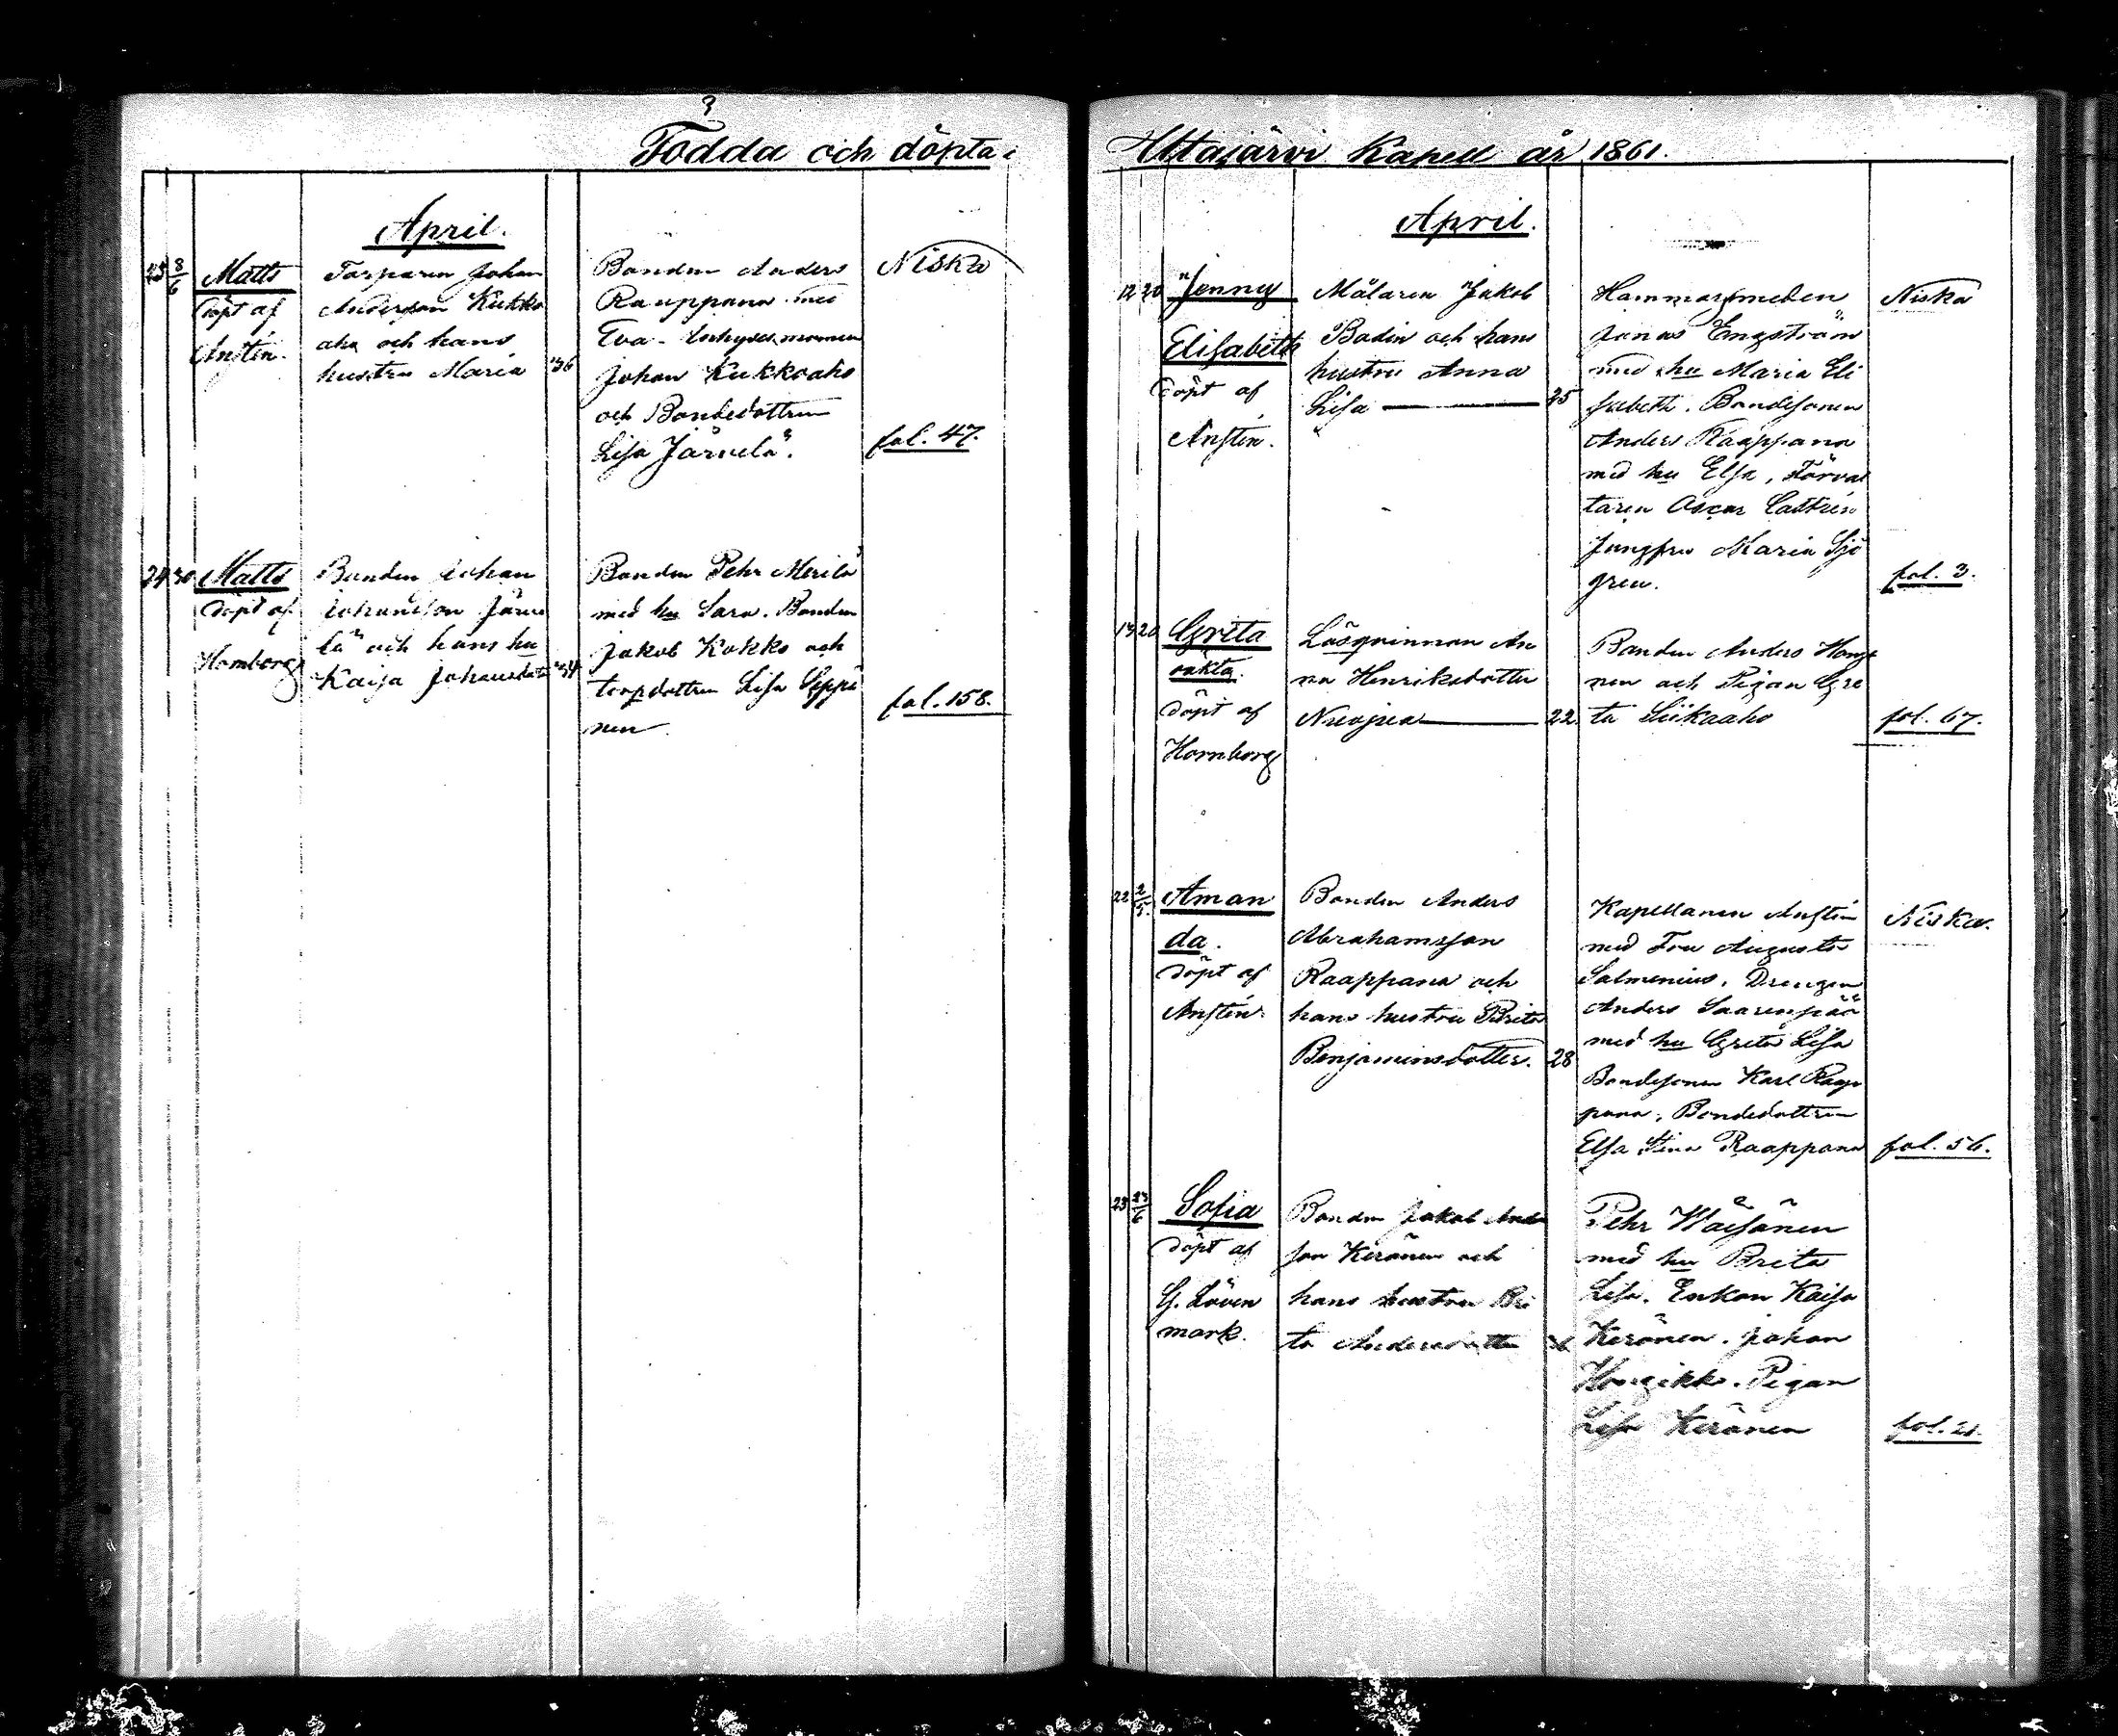 3
Födda och döpta i
April.
23 8/6 Matts Torparen Johan Bonden Anders Niska
döpt af Andersson Kukko Raappana med
Anstén. aho och hans Eva. Inhysesmannen
hustru Maria 36 Johan Kukkoaho
och Bondedottren
Lisa Järvelä. fol. 47.
24 30 Matts Bonden Johan Bonden Pehr Merilä
döpt af Johansson Järve med hu Sara. Bonden
Hornborg lä och hans hu Jakob Kokko och
Kaisa Johansdotter 34 torpdottren Lisa Seppä
nen fol. 158.
Uttajärvi Kapell år 1861.
April.
12 20 Jenny Målaren Jakob Hammarsmeden Niska
Elisabeth Bodin och hans Jonas Engström
döpt af hustru Anna med hu Maria Eli
Anstén. Lisa 25 sabeth. Bondesonen
Anders Raappana
med hu Elsa, Förval
taren Oscar Castrén
Jungfru Maria Sjö
gren. fol. 3.
13 20 Greta Lösqvinnan An Bonden Anders
oäkta. na Henriksdotter nen och Pigan Gre
döpt af Nuojua 22 ta Siikaaho fol. 67.
Hornborg
22 2/5 Aman Bonden Anders Kapellanen Anstén Niska.
da. Abrahamsson med Fru Augusta
döpt af Raappana och Salmenius. Drengen
Anstén. hans hustru Brita Anders Saarenpää
Benjaminsdotter. 28 med hu Greta Lisa
Bondesonen Karl Raap
pana, Bondedottren
Elsa Stina Raappana fol. 56.
23 23/6 Sofia Bonden Jakob Anders Pehr Wäisänen
döpt af son Keränen och med hu Brita
G. Löven hans hustru Bri Lisa. Enkan Kaisa
mark. ta Andersdotter Keränen. Johan
Hongikko. Pigan
Lisa Keränen fol. 21.